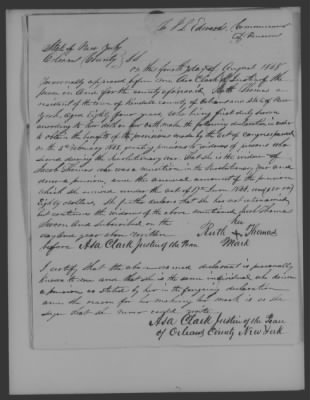 To J L Edwards, Commissioner
of Pensions
State of New York
Orleans County } SS
On the fourth day of August 1848
personally appeared before me Asa Clark Justice of the
Peace in and for the county aforesaid Ruth Thomas a
resident of the town of Kendall county of Orleans and State of New
York aged eighty four years, who being first duly sworn
according to law doth on her oath make the following declaration in order
to obtain the benefit of the provisions made by the act of Congress passed
on the 2d February 1848, granting pensions to widows of persons who
served during the Revolutionary war. That she is the widow of
Thomas who was a in the Revolutionary war and
drew a pension, and the annual amount of the pension
which she received under the act of 17th June 1844, was
Eighty dollars. She further declares that she has not intermarried,
but continues the widow of the above mentioned Thomas
Sworn and subscribed on the her
day and year above written Ruth + Thomas
before Asa Clark Justice of the Peace Mark
I certify that the above named declarant is personally
known to me and that she is the same individual who drew
a pension as stated by her in the foregoing declaration
and the reason for her making her mark is as she
says that she never could write
Asa Clark Justice of the Peace
of Orleans County New York